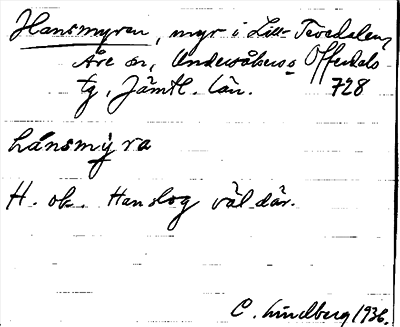 Hansmyren, myr i Lill-Tevedalen,
Åre sn, Undersåkers o Offerdals
tg, Jämtl. län. 728
hánsmy̆ra
H. ok. Han slog väl där.
C. Lindberg 1936.